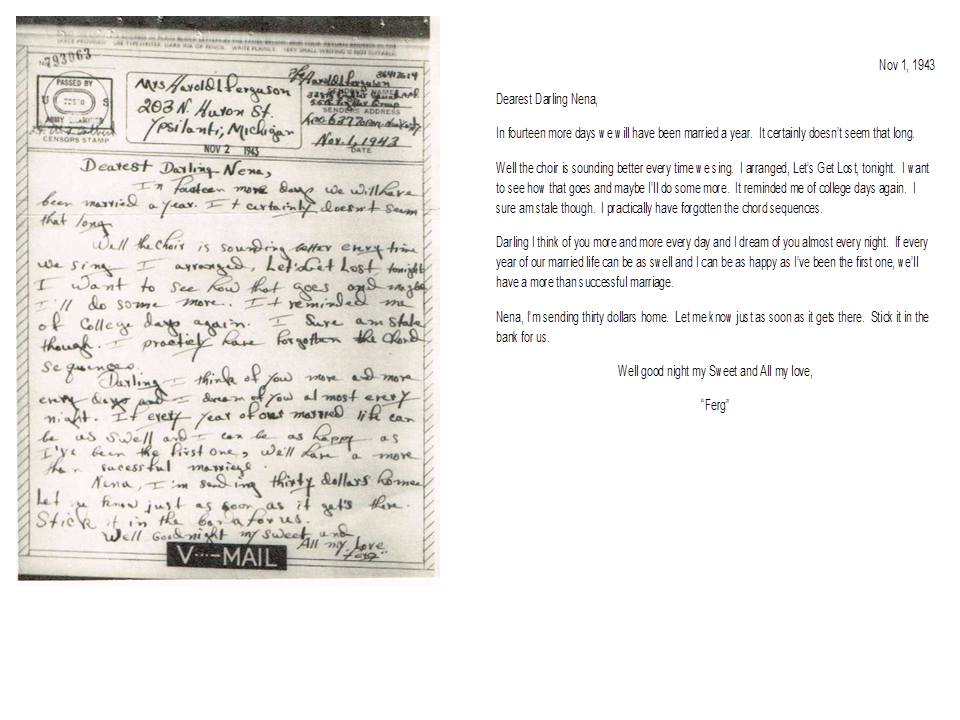 No 793063
PASSED BY
U S
ARMY EXAMINER
CENSORS STAMP
Mrs Harold L Ferguson
203 N. Huron St.
Ypsilanti, Michigan
NOV 2 1943
Harold L Ferguson
36412614
SENDERS NAME
SENDERS ADDRESS
Nov. 1, 1943
DATE
Dearest Darling Nena,
In fourteen more days we will have
been married a year. It certainly doesn't seem
that long.
Well the choir is sounding better every time
we sing. I arranged, Let's Get Lost, tonight
I want to see how that goes and maybe
I'll do some more. It reminded me
of College days again. I Sure am stale
though. I practicly have forgotten the Chord
Sequences.
Darling I think of you more and more
every days and I dream of you almost every
night. If every year of our married life can
be as swell and I can be as happy as
I've been the first one, we'll have a more
than sucessful marriage.
Nena, I'm sending thirty dollars home
Let me know just as soon as it get's there.
Stick it in the bank for us.
Well Goodnight my Sweet and
All my Love
"Ferg"
V···-MAIL
Nov 1, 1943
Dearest Darling Nena,
In fourteen more days we will have been married a year. It certainly doesn't seem that long.
Well the choir is sounding better every time we sing. I arranged, Let's Get Lost, tonight. I want
to see how that goes and maybe I'll do some more. It reminded me of college days again. I
sure am stale though. I practically have forgotten the chord sequences.
Darling I think of you more and more every day and I dream of you almost every night. If every
year of our married life can be as swell and I can be as happy as I've been the first one, we'll
have a more than successful marriage.
Nena, I'm sending thirty dollars home. Let me know just as soon as it gets there. Stick it in the
bank for us.
Well good night my Sweet and All my love,
"Ferg"